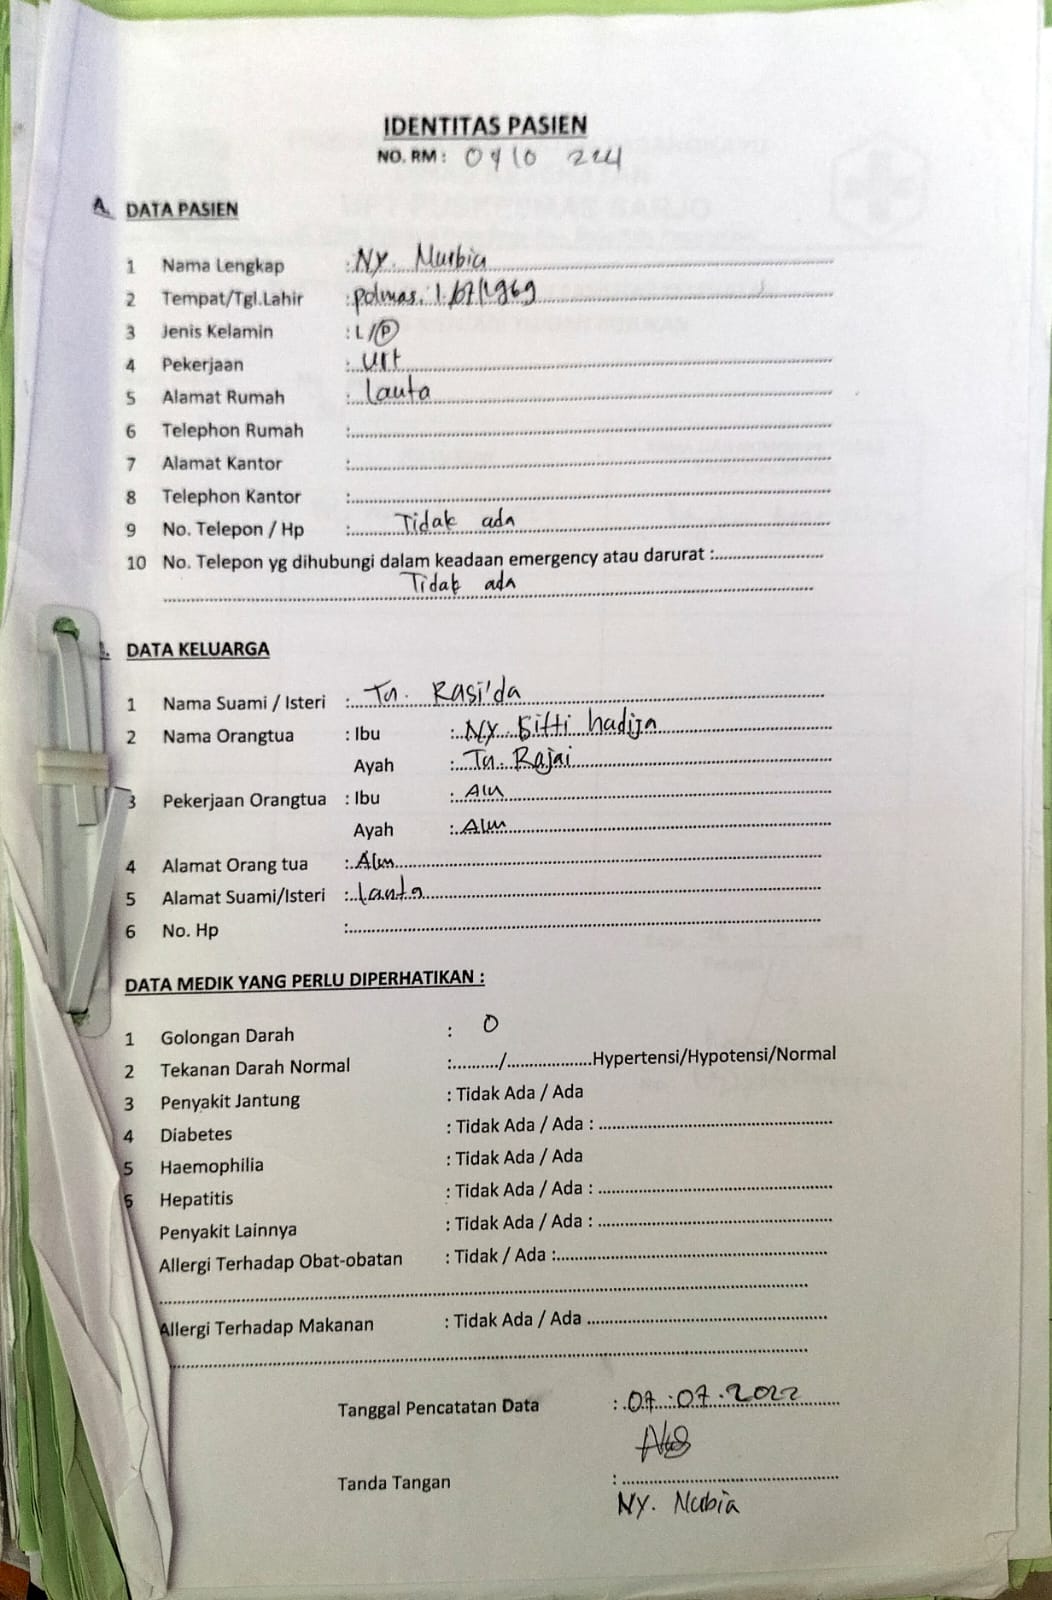 IDENTITAS PASIEN
NO. RM : 0910 224
A. DATA PASIEN
1 Nama Lengkap : Ny. Nurbia
2 Tempat/Tgl.Lahir : polmas, 1/07/1969
3 Jenis Kelamin : L/P
4 Pekerjaan : Urt
5 Alamat Rumah : Lauta
6 Telephon Rumah :
7 Alamat Kantor :
8 Telephon Kantor :
9 No. Telepon / Hp : Tidak ada
10 No. Telepon yg dihubungi dalam keadaan emergency atau darurat :
Tidak ada
DATA KELUARGA
1 Nama Suami / Isteri : Tn. Rasi'da
2 Nama Orangtua : Ibu : Ny Sitti hadija
Ayah : Tn. Rajai
3 Pekerjaan Orangtua : Ibu : Alm
Ayah : Alm
4 Alamat Orang tua : Alm
5 Alamat Suami/Isteri : Lauta
6 No. Hp :
DATA MEDIK YANG PERLU DIPERHATIKAN :
1 Golongan Darah : O
2 Tekanan Darah Normal :........./..................Hypertensi/Hypotensi/Normal
3 Penyakit Jantung : Tidak Ada / Ada
4 Diabetes : Tidak Ada / Ada :
5 Haemophilia : Tidak Ada / Ada
6 Hepatitis : Tidak Ada / Ada :
Penyakit Lainnya : Tidak Ada / Ada :
Allergi Terhadap Obat-obatan : Tidak / Ada :
Allergi Terhadap Makanan : Tidak Ada / Ada
Tanggal Pencatatan Data : 07.07.2022
Tanda Tangan :
Ny. Nurbia